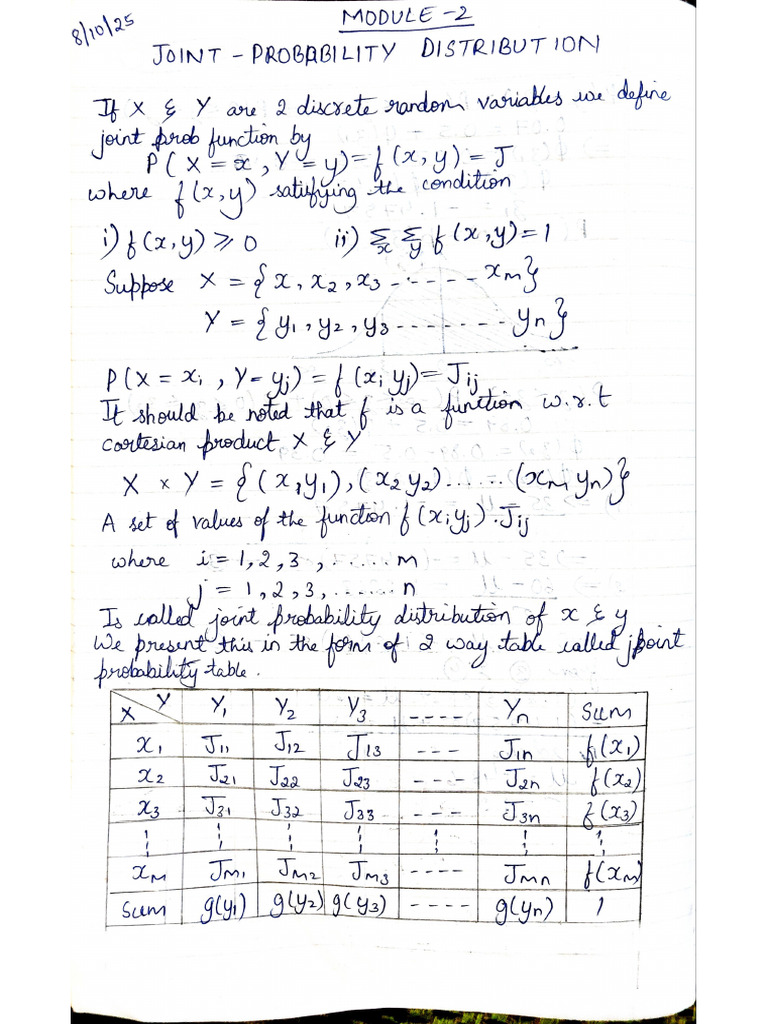 8/10/25
MODULE -2
JOINT - PROBABILITY DISTRIBUTION
If X & Y are 2 discrete random variables we define
joint prob function by
P( X = x , Y = y) = f(x, y) = J
where f(x,y) satisfying the condition
i) f(x,y) ⩾ 0 ii) Σx Σy f(x,y) = 1
Suppose X = {x, x2, x3 ------ xm}
Y = {y1, y2, y3 -------- yn}
P(X = xi , Y- yj) = f (xi yj) = Jij
It should be noted that f is a function w.r.t
cartesian product X & Y
X × Y = {(x1y1), (x2 y2) ...... (xm yn)}
A set of values of the function f(xiyj). Jij
where i = 1,2,3 , ...... m
j = 1,2,3, ...... n
Is called joint probability distribution of x & y
We present this in the form of 2 way table called joint
probability table.
X Y Y1 Y2 Y3 ---- Yn Sum
x1 J11 J12 J13 --- J1n f(x1)
x2 J21 J22 J23 --- J2n f(x2)
x3 J31 J32 J33 --- J3n f(x3)
¦ ¦ ¦ ¦ ¦ ¦ ¦
xm Jm1 Jm2 Jm3 ---- Jmn f(xm)
Sum g(y1) g(y2) g(y3) ---- g(yn) 1